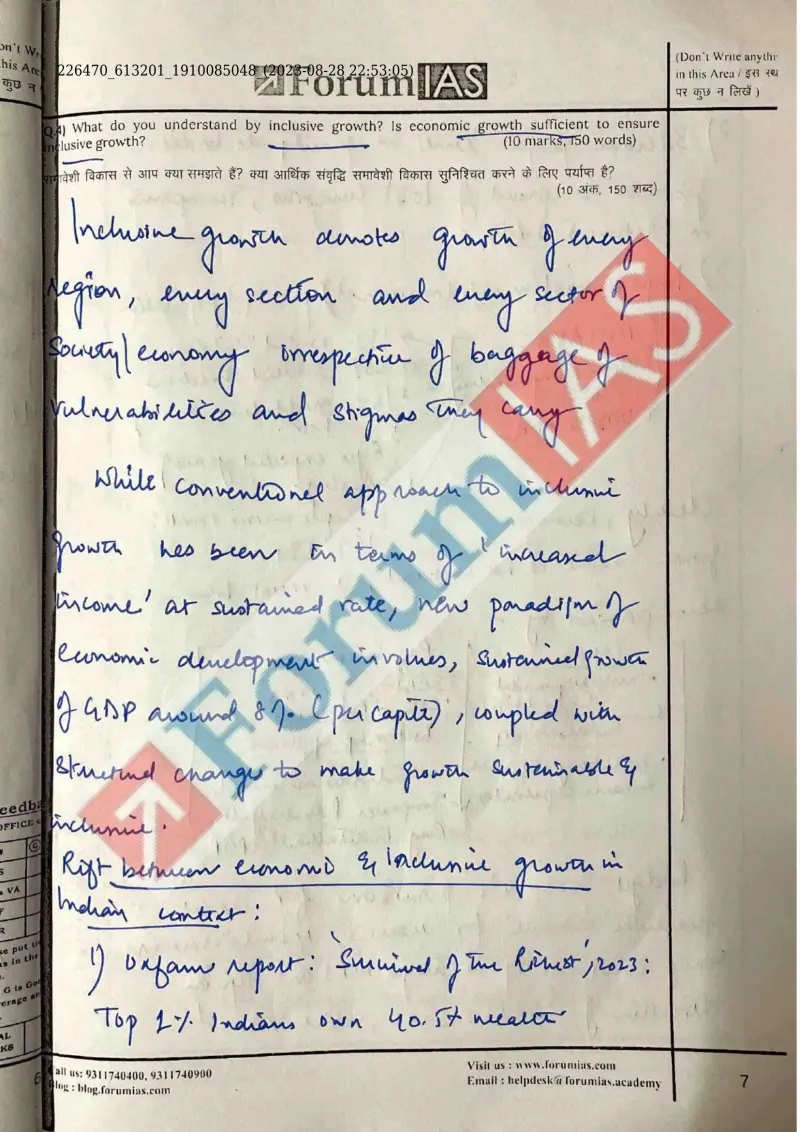 226470_613201_1910085048 (2023-08-28 22:53:05)
on't Wr
his Are
कुछ न
Forum IAS
(Don't Write anythi
in this Area / इस
पर कुछ न लिखें )
Q.4) What do you understand by inclusive growth? Is economic growth sufficient to ensure
nclusive growth? (10 marks, 150 words)
मावेशी विकास से आप क्या समझते हैं? क्या आर्थिक संवृद्धि समावेशी विकास सुनिश्चित करने के लिए पर्याप्त है?
(10 अंक, 150 शब्द)
Inclusive growth denotes growth of every
region, every section and every sector of
Society/economy irrespective of baggage of
vulnerabilities and stigmas they carry
While conventional approach to inclusive
growth has been in terms of 'increased
income' at sustained rate, new paradigm of
economic development involves, sustained growth
of GDP around 8% (per capita), coupled with
structural changes to make growth sustainable &
inclusive.
Rift between economic & Inclusive growth in
Indian context:
1) Oxfam report: 'Survival of the Richest', 2023:
Top 1% Indians own 40.5% wealth
ForumIAS
eedba
OFFICE
VA
R
se put
s in the
G is Go
erage a
AL
KS
6
all us: 9311740400, 9311740900
log : blog.forumias.com
Visit us : www.forumias.com
Email : helpdesk@forumias.academy
7